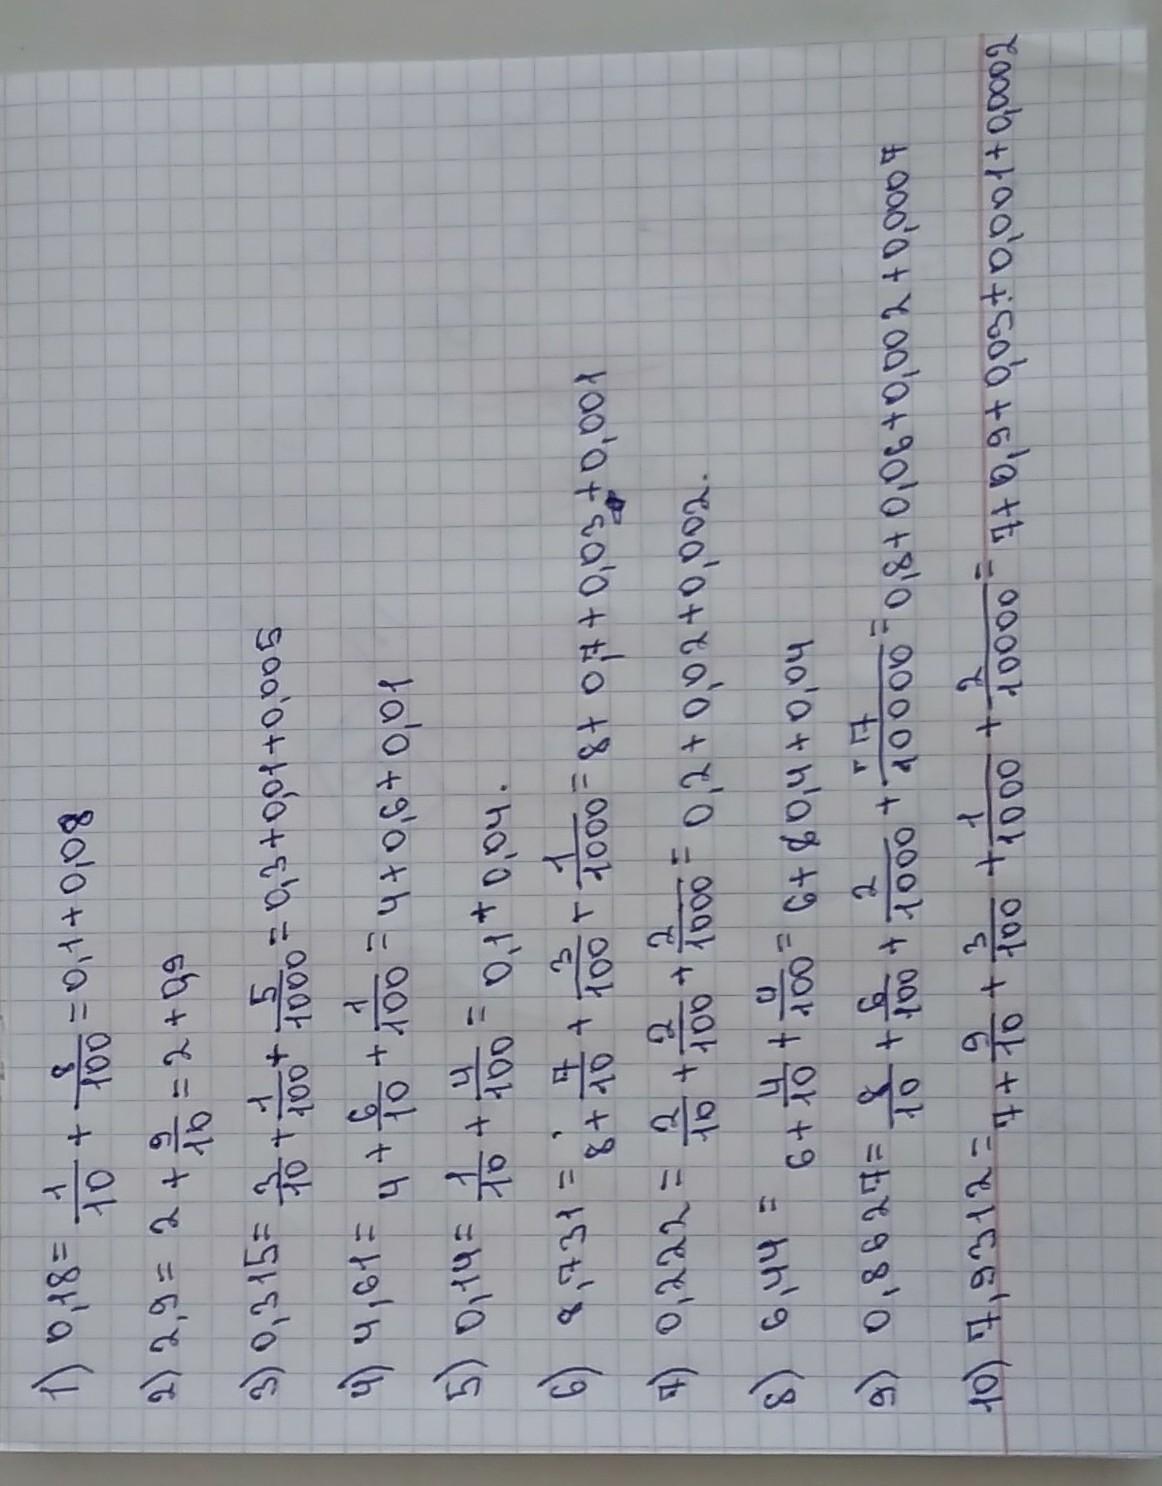 1) 0,18 = 1/10 + 8/100 = 0,1 + 0,08
2) 2,9 = 2 + 9/10 = 2 + 0,9
3) 0,315 = 3/10 + 1/100 + 5/1000 = 0,3 + 0,01 + 0,005
4) 4,61 = 4 + 6/10 + 1/100 = 4 + 0,6 + 0,01
5) 0,14 = 1/10 + 4/100 = 0,1 + 0,04.
6) 8,731 = 8 + 7/10 + 3/100 + 1/1000 = 8 + 0,7 + 0,03 + 0,001
7) 0,222 = 2/10 + 2/100 + 2/1000 = 0,2 + 0,02 + 0,002.
8) 6,44 = 6 + 4/10 + 4/100 = 6 + 8 0,4 + 0,04
9) 0,8627 = 8/10 + 6/100 + 2/1000 + 7/10000 = 0,8 + 0,06 + 0,002 + 0,0007
10) 7,9312 = 7 + 9/10 + 3/100 + 1/1000 + 2/10000 = 7 + 0,9 + 0,03 + 0,001 + 0,0002